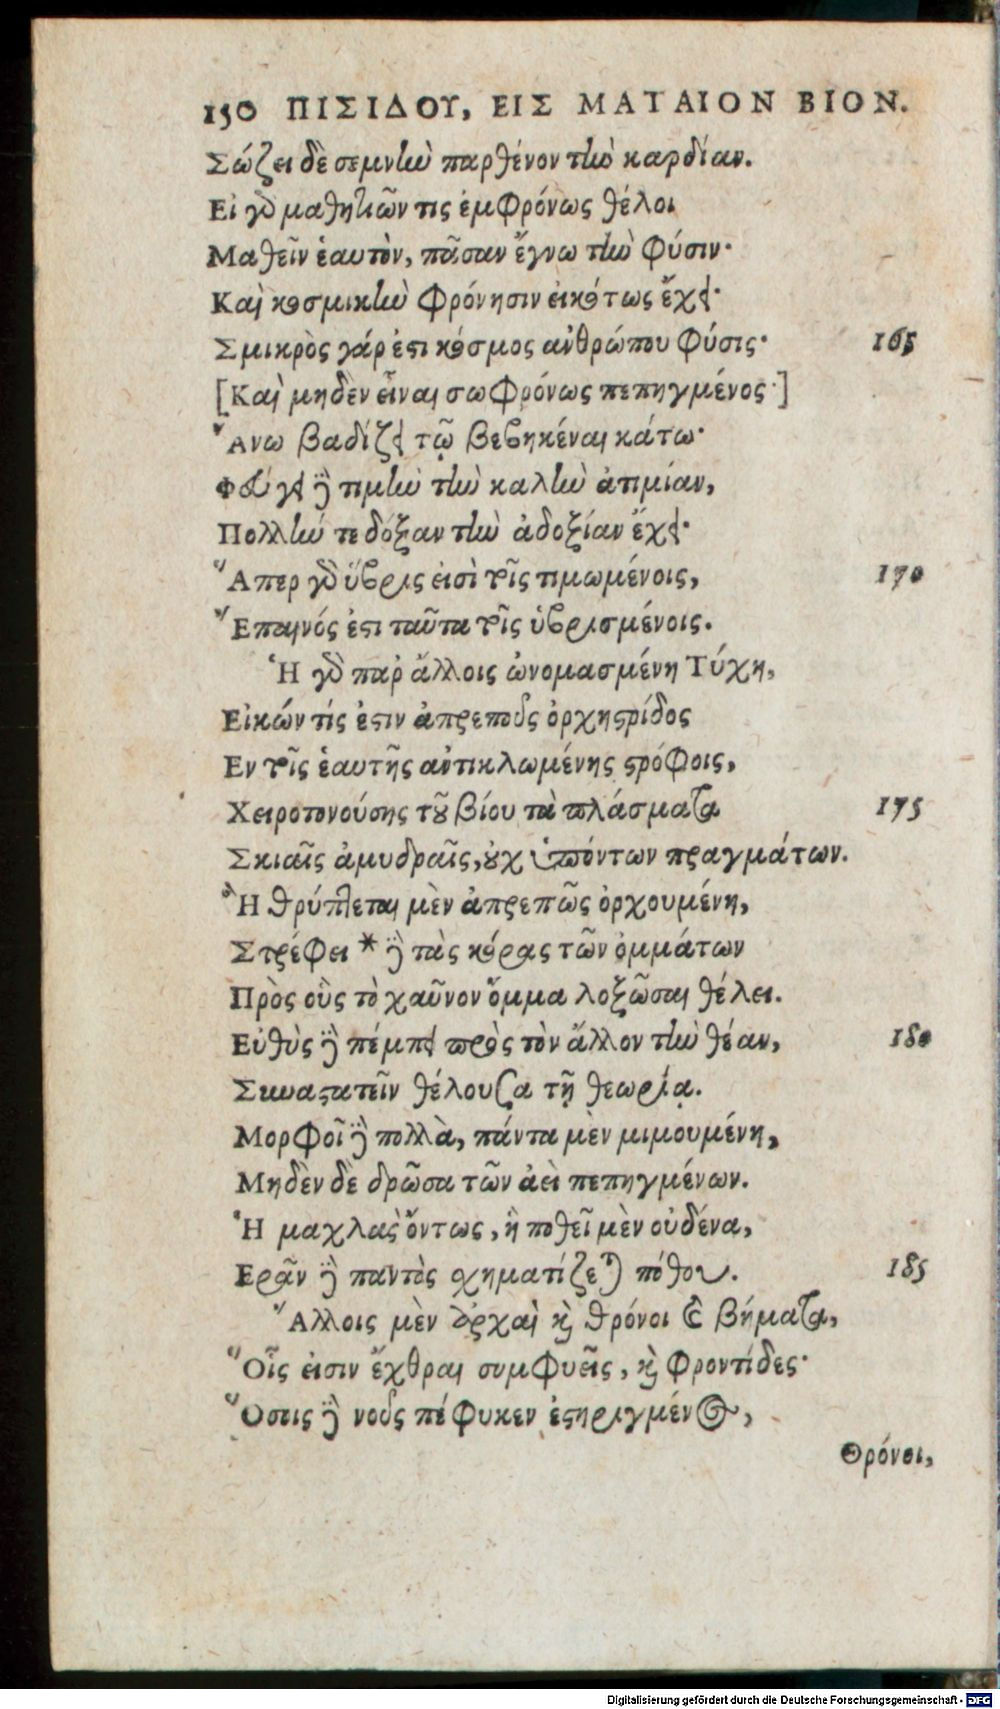 150 ΠΙΣΙΔΟΥ, ΕΙΣ ΜΑΤΑΙΟΝ ΒΙΟΝ.
Σώζει δὲ σεμνὴν παρθένον τὴν καρδίαν.
Εἰ γὰρ μαθητιῶν τις ἐμφρόνως θέλοι
Μαθεῖν ἑαυτὸν, πᾶσαν ἔγνω τὴν φύσιν·
Καὶ κοσμικὴν φρόνησιν εἰκότως ἔχει·
Σμικρὸς γάρ ἐστι κόσμος ἀνθρώπου φύσις· 165
[Καὶ μηδὲν εἶναι σωφρόνως πεπηγμένος·]
Ἄνω βαδίζει τῷ βεβηκέναι κάτω·
Φεύγει δὲ τιμὴν τὴν καλὴν ἀτιμίαν,
Πολλήν τε δόξαν τὴν ἀδοξίαν ἔχει·
Ἅπερ γὰρ ὕβρις εἰσὶ τοῖς τιμωμένοις, 170
Ἔπαινός ἐστι ταῦτα τοῖς ὑβρισμένοις.
Ἡ γὰρ παρ' ἄλλοις ὠνομασμένη Τύχη,
Εἰκών τίς ἐστιν ἀπρεποῦς ὀρχηστρίδος
Εν τοῖς ἑαυτῆς ἀντικλωμένης στρόφοις,
Χειροτονούσης τοῦ βίου τὰ πλάσματα 175
Σκιαῖς ἀμυδραῖς, οὐχ ὑπόντων πραγμάτων.
Ἣ θρύπτεται μὲν ἀπρεπῶς ὀρχουμένη,
Στρέφει * δὲ τὰς κόρας τῶν ὀμμάτων
Πρὸς οὓς τὸ χαῦνον ὄμμα λοξῶσαι θέλει.
Εὐθὺς δὲ πέμπει πρὸς τὸν ἄλλον τὴν θέαν, 180
Συναστατεῖν θέλουσα τῇ θεωρίᾳ.
Μορφοῖ δὲ πολλὰ, πάντα μὲν μιμουμένη,
Μηδὲν δὲ δρῶσα τῶν ἀεὶ πεπηγμένων.
Ἡ μαχλὰς ὄντως, ἣ ποθεῖ μὲν οὐδένα,
Ερᾶν δὲ παντὸς σχηματίζεται πόθου. 185
Ἄλλοις μὲν ἀρχαὶ καὶ θρόνοι καὶ βήματα,
Οἷς εἰσιν ἔχθραι συμφυεῖς, καὶ φροντίδες·
Ὅστις δὲ νοῦς πέφυκεν ἐστηριγμένος,
Θρόνοι,
Digitalisierung gefördert durch die Deutsche Forschungsgemeinschaft - DFG